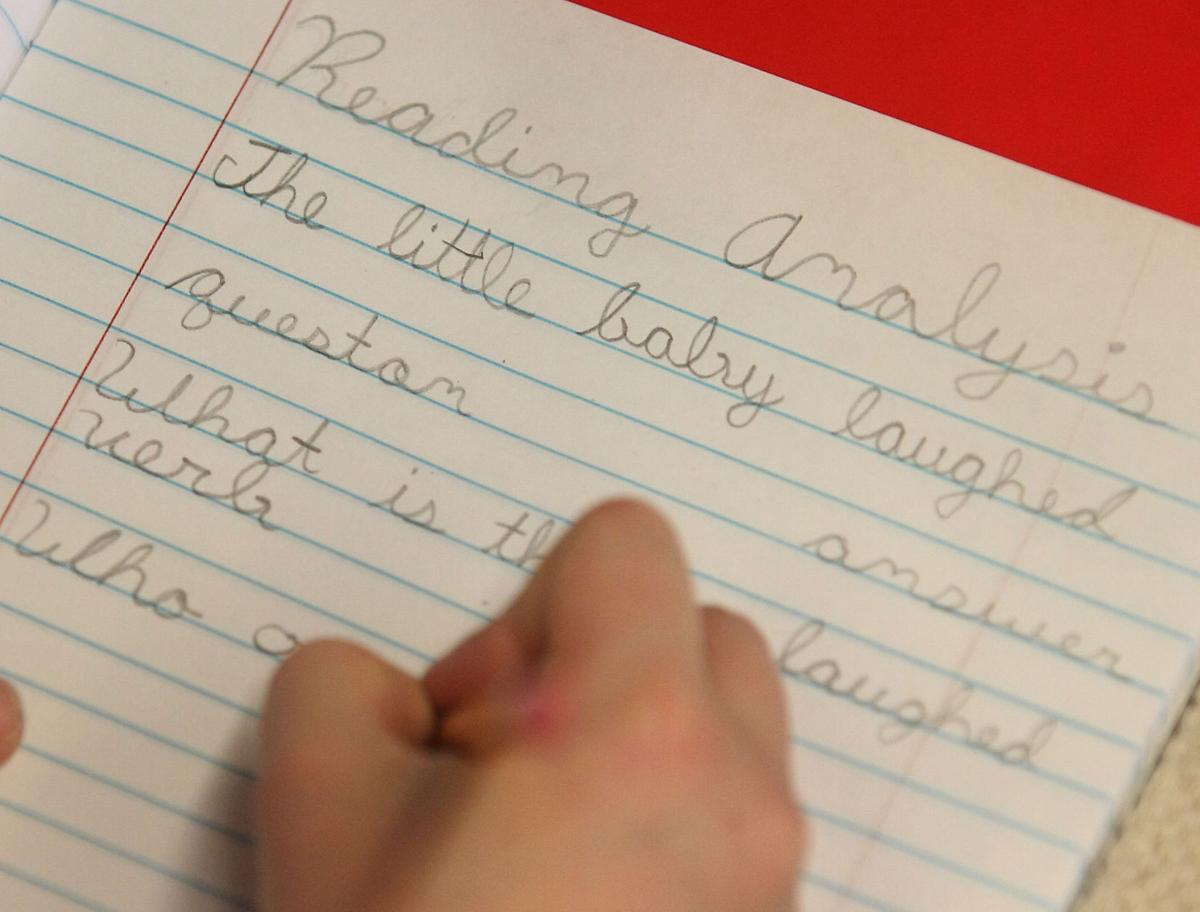 Reading Analysis
The little baby laughed
queston answer
What is th laughed
verb
Who